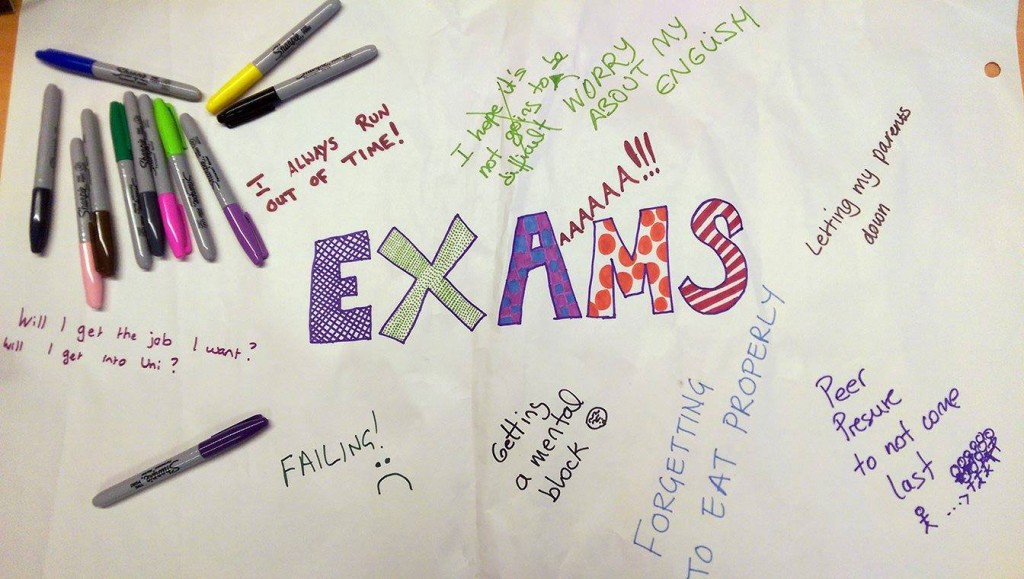 I ALWAYS RUN
OUT OF TIME!
I hope it's
not going to be
difficult
WORRY
ABOUT MY
ENGLISH
AAAAAA!!!
Letting my parents
down
EXAMS
Will I get the job I want?
Will I get into Uni?
FAILING!
Getting
a mental
block
FORGETTING
TO EAT PROPERLY
Peer
Presure
to not come
last
Sharpie
Sharpie
Sharpie